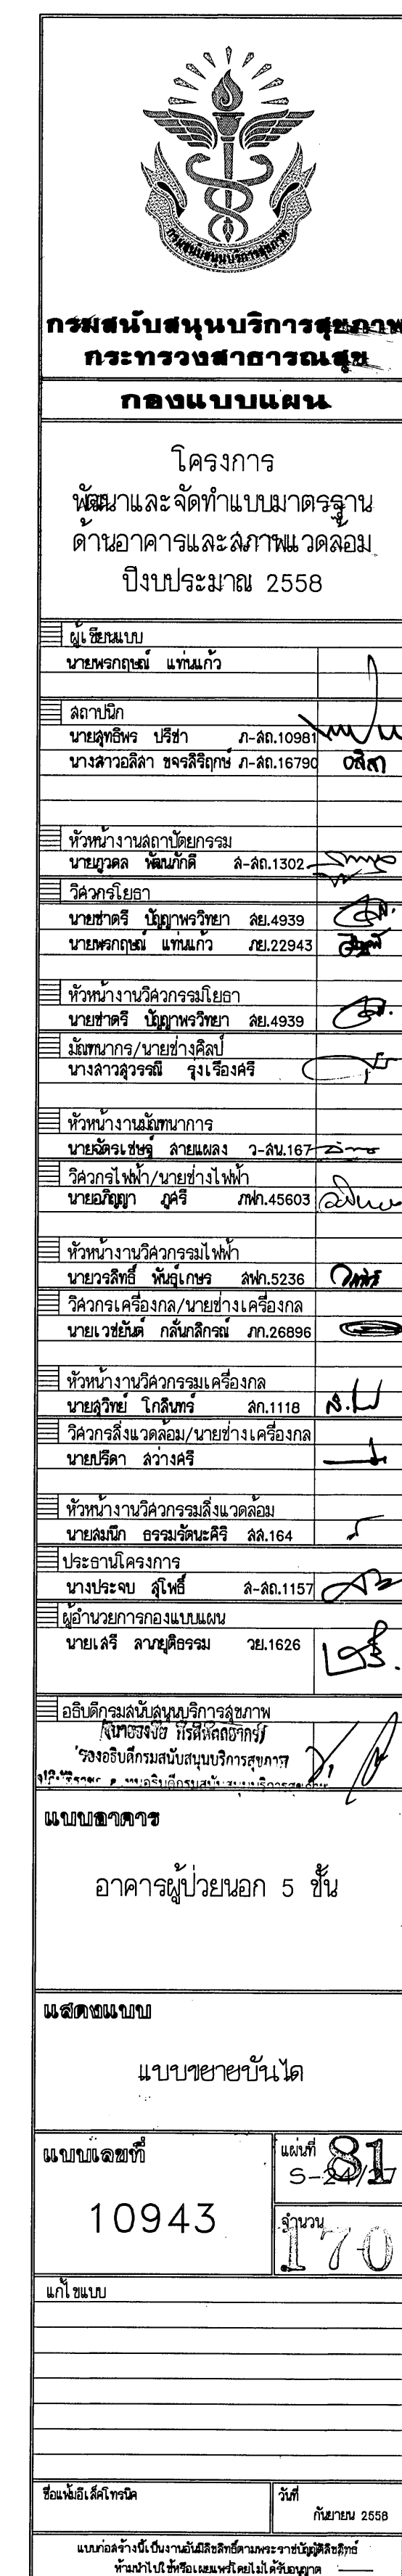 กรมสนับสนุนบริการสุขภาพ
กรมสนับสนุนบริการสุขภาพ
กระทรวงสาธารณสุข
กองแบบแผน
โครงการ
พัฒนาและจัดทำแบบมาตรฐาน
ด้านอาคารและสภาพแวดล้อม
ปีงบประมาณ 2558
ผู้เขียนแบบ
นายพรกฤษณ์ แท่นแก้ว
สถาปนิก
นายสุทธิพร ปรีชา ภ-สถ.10981
นางสาวอลิสา ขจรสิริฤกษ์ ภ-สถ.16790 อลิสา
หัวหน้างานสถาปัตยกรรม
นายภูวดล พัฒนภักดี ส-สถ.1302
วิศวกรโยธา
นายชาตรี ปัญญาพรวิทยา สย.4939
นายพรกฤษณ์ แท่นแก้ว ภย.22943
หัวหน้างานวิศวกรรมโยธา
นายชาตรี ปัญญาพรวิทยา สย.4939
มัณฑนากร/นายช่างศิลป์
นางสาวสุวรรณี รุ่งเรืองศรี
หัวหน้างานมัณฑนาการ
นายฉัตรเชษฐ์ สายแผลง ว-สน.167
วิศวกรไฟฟ้า/นายช่างไฟฟ้า
นายอภิญญา ภูศรี ภฟก.45603
หัวหน้างานวิศวกรรมไฟฟ้า
นายวรสิทธิ์ พันธุ์เกษร สฟก.5236
วิศวกรเครื่องกล/นายช่างเครื่องกล
นายเวชยันต์ กลั่นกสิกรณ์ ภก.26896
หัวหน้างานวิศวกรรมเครื่องกล
นายสุวิทย์ โกสินทร์ สก.1118
วิศวกรสิ่งแวดล้อม/นายช่างเครื่องกล
นายปรีดา สว่างศรี
หัวหน้างานวิศวกรรมสิ่งแวดล้อม
นายสมนึก ธรรมรัตนะศิริ สส.164
ประธานโครงการ
นางประจบ สุโพธิ์ ส-สถ.1157
ผู้อำนวยการกองแบบแผน
นายเสรี ลาภยุติธรรม วย.1626
อธิบดีกรมสนับสนุนบริการสุขภาพ
รองอธิบดีกรมสนับสนุนบริการสุขภาพ
แบบอาคาร
อาคารผู้ป่วยนอก 5 ชั้น
แสดงแบบ
แบบขยายบันได
แบบเลขที่
10943
แผ่นที่ 81
S-24/27
จำนวน
170
แก้ไขแบบ
ชื่อแฟ้มอิเล็คโทรนิค
วันที่
กันยายน 2558
แบบก่อสร้างนี้เป็นงานอันมีลิขสิทธิ์ตามพระราชบัญญัติลิขสิทธิ์
ห้ามนำไปใช้หรือเผยแพร่โดยไม่ได้รับอนุญาต